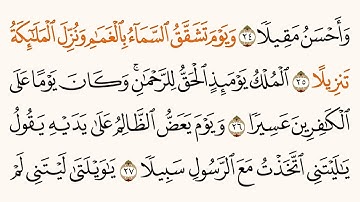 وَأَحْسَنُ مَقِيلًا ٢٤ وَيَوْمَ تَشَقَّقُ ٱلسَّمَآءُ بِٱلْغَمَٰمِ وَنُزِّلَ ٱلْمَلَٰٓئِكَةُ
تَنزِيلًا ٢٥ ٱلْمُلْكُ يَوْمَئِذٍ ٱلْحَقُّ لِلرَّحْمَٰنِ ۚ وَكَانَ يَوْمًا عَلَى
ٱلْكَٰفِرِينَ عَسِيرًا ٢٦ وَيَوْمَ يَعَضُّ ٱلظَّالِمُ عَلَىٰ يَدَيْهِ يَقُولُ
يَٰلَيْتَنِى ٱتَّخَذْتُ مَعَ ٱلرَّسُولِ سَبِيلًا ٢٧ يَٰوَيْلَتَىٰ لَيْتَنِى لَمْ